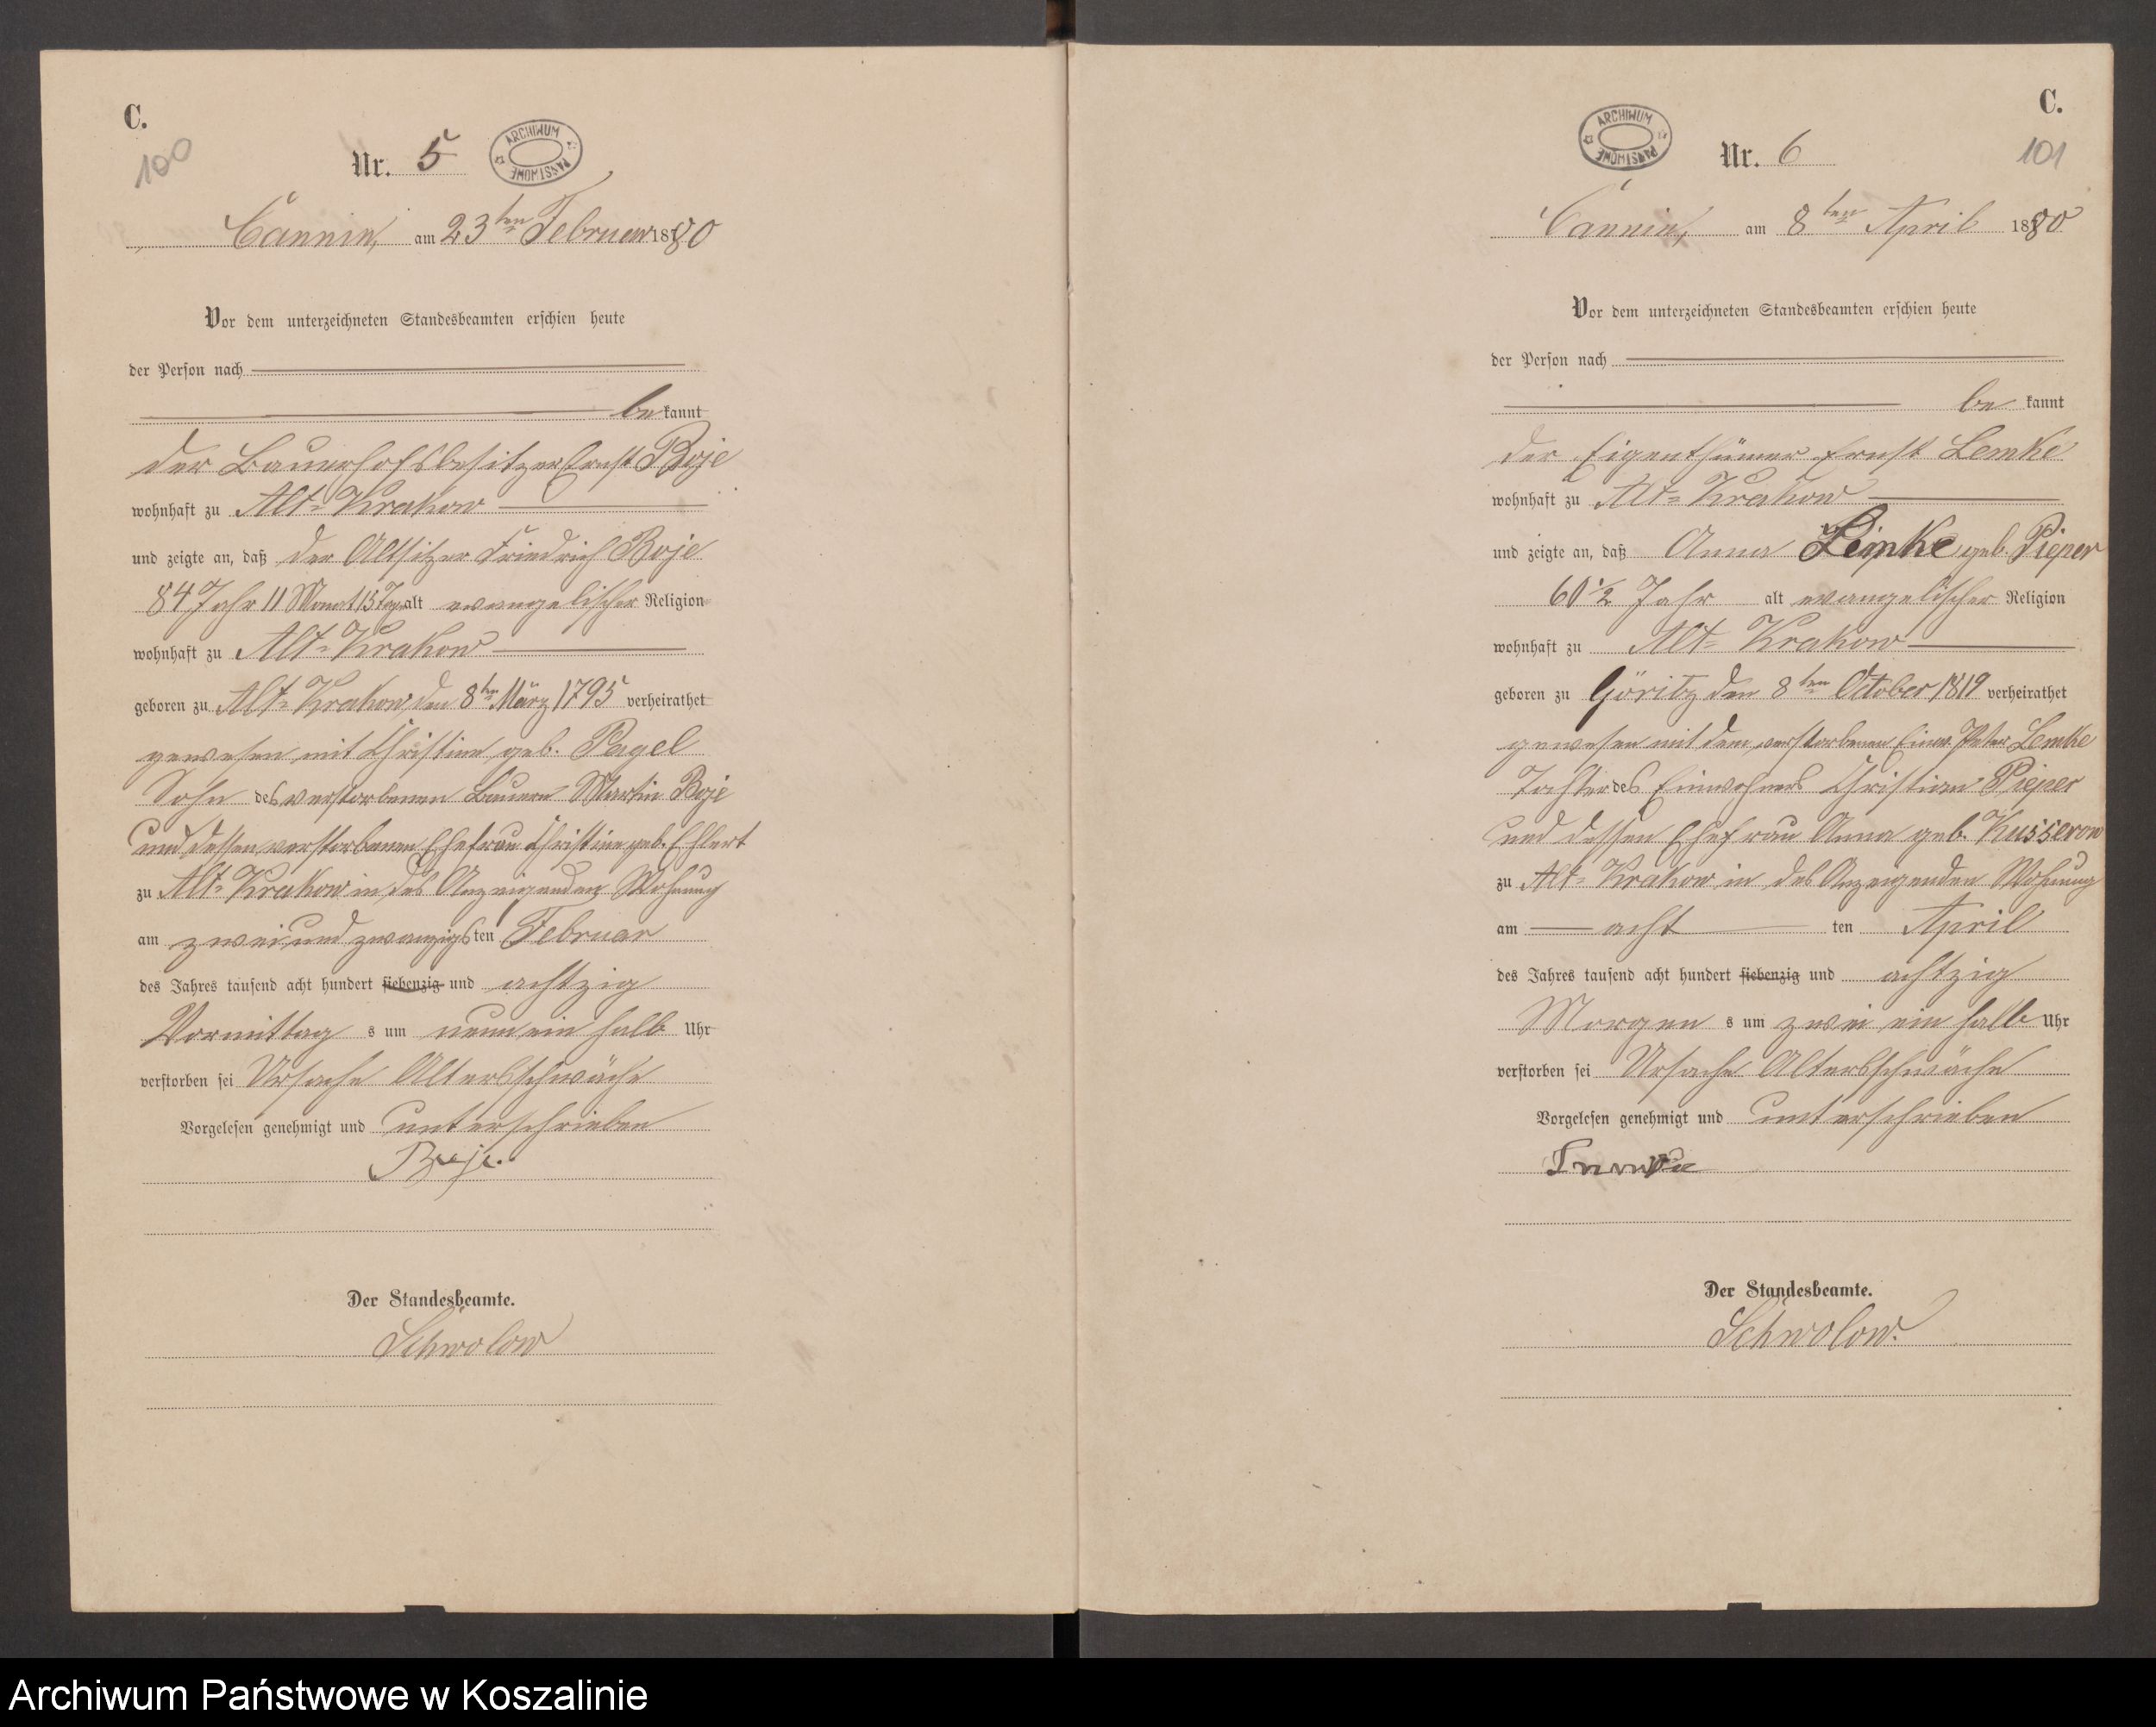 C.
100
Nr. 5
ARCHIWUM PAŃSTWOWE
Cannin, am 23ten Februar 1880
Vor dem unterzeichneten Standesbeamten erschien heute
der Person nach
bekannt
der Bauerhofsbesitzer Ernst Boje
wohnhaft zu Alt-Krakow
und zeigte an, daß der Altsitzer Friedrich Boje
84 Jahr 11 Monat 15 Tag alt evangelischer Religion
wohnhaft zu Alt-Krakow
geboren zu Alt-Krakow, den 8ten März 1795 verheirathet
gewesen mit Christine geb. Pagel
Sohn des verstorbenen Bauern Martin Boje
und dessen verstorbenen Ehefrau Christine geb. Ehlert
zu Alt-Krakow in des Anzeigenden Wohnung
am zwei und zwanzigsten Februar
des Jahres tausend acht hundert siebenzig und achtzig
Vormittag s um neun ein halb Uhr
verstorben sei Ursache Altersschwäche
Vorgelesen genehmigt und unterschrieben
Boje.
Der Standesbeamte.
Schwolow
C.
101
ARCHIWUM PAŃSTWOWE
Nr. 6
Cannin, am 8ten April 1880
Vor dem unterzeichneten Standesbeamten erschien heute
der Person nach
be kannt
der Eigenthümer Ernst Lemke
wohnhaft zu Alt-Krakow
und zeigte an, daß Anna Lemke geb. Pieper
60 1/2 Jahr alt evangelischer Religion
wohnhaft zu Alt-Krakow
geboren zu Göritz den 8ten October 1819 verheirathet
gewesen mit dem verstorbenen Einw. Peter Lemke
Tochter des Einwohners Christian Pieper
und dessen Ehefrau Anna geb. Kusserow
zu Alt-Krakow in des Anzeigenden Wohnung
am acht ten April
des Jahres tausend acht hundert siebenzig und achtzig
Morgen s um zwei ein halb Uhr
verstorben sei Ursache Altersschwäche
Vorgelesen genehmigt und unterschrieben
Der Standesbeamte.
Schwolow.
Archiwum Państwowe w Koszalinie